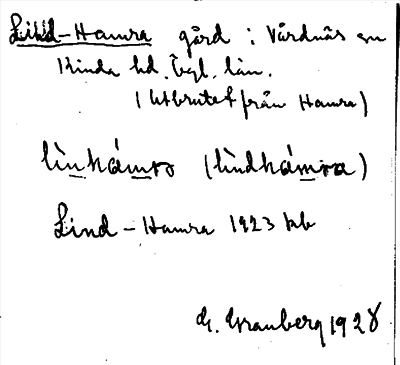 Lind-Hamra gård i Vårdnäs sn
Kinda hd. Ögl. län.
(Utbrutet från Hamra)
lìnhámra (lìndhámra)
Lind-Hamra 1923 kb
G. Franberg 1928